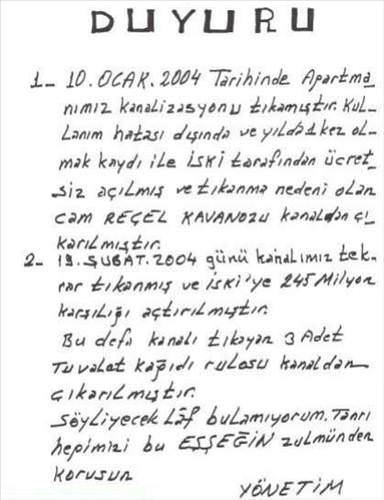 DUYURU
1- 10.OCAK.2004 Tarihinde Apartma_
nımız kanalizasyonu tıkamıştır. Kul_
Lanım hatası dışında ve yılda 1 kez ol_
mak kaydı ile İSKİ tarafından ücret_
siz açılmış ve tıkanma nedeni olan
cam REÇEL KAVANOZU kanaldan çı_
karılmıştır.
2- 19.ŞUBAT.2004 günü kanalımız tek_
rar tıkanmış ve İski'ye 245 Milyon
karşılığı açtırılmıştır.
Bu defa kanalı tıkayan 3 Adet
Tuvalet kağıdı rulosu kanaldan
çıkarılmıştır.
Söyliyecek Lâf bulamıyorum. Tanrı
hepimizi bu EŞŞEĞİN zulmünden
korusun
YÖNETİM